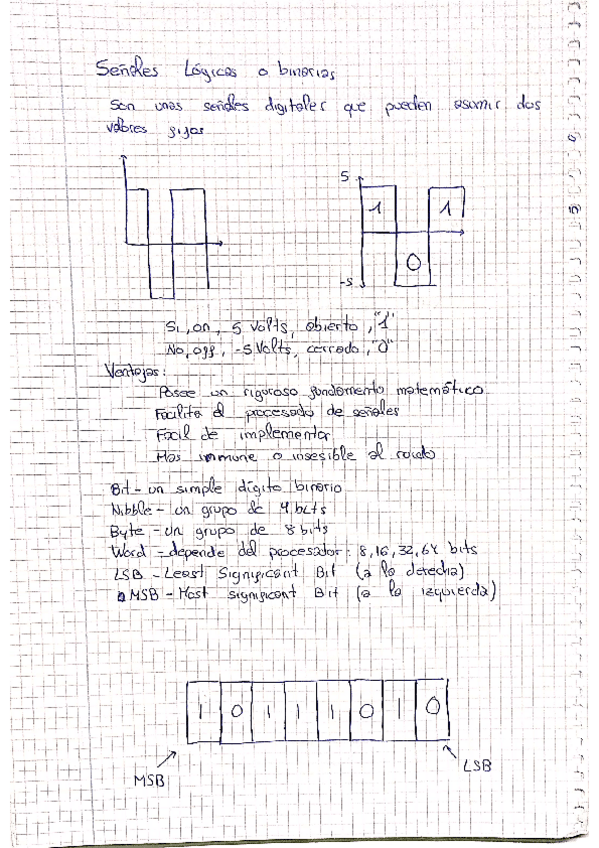 Señales Lógicas o binarias
Son unas señales digitales que pueden asumir dos
valores fijos
5
1
1
0
-5
Si, on, 5 Volts, abierto, "1"
No, off, -5 Volts, cerrado, "0"
Ventajas:
Posee un riguroso fundamento matemático
Facilita el procesado de señales
Fácil de implementar
Mas immune o insesible al ruido
Bit - un simple dígito binario
Nibble - un grupo de 4 bits
Byte - un grupo de 8 bits
Word - depende del procesador: 8, 16, 32, 64 bits
LSB - Least Significant Bit (a la derecha)
MSB - Most significant Bit (a la izquierda)
1 0 1 1 1 0 1 0
MSB
LSB